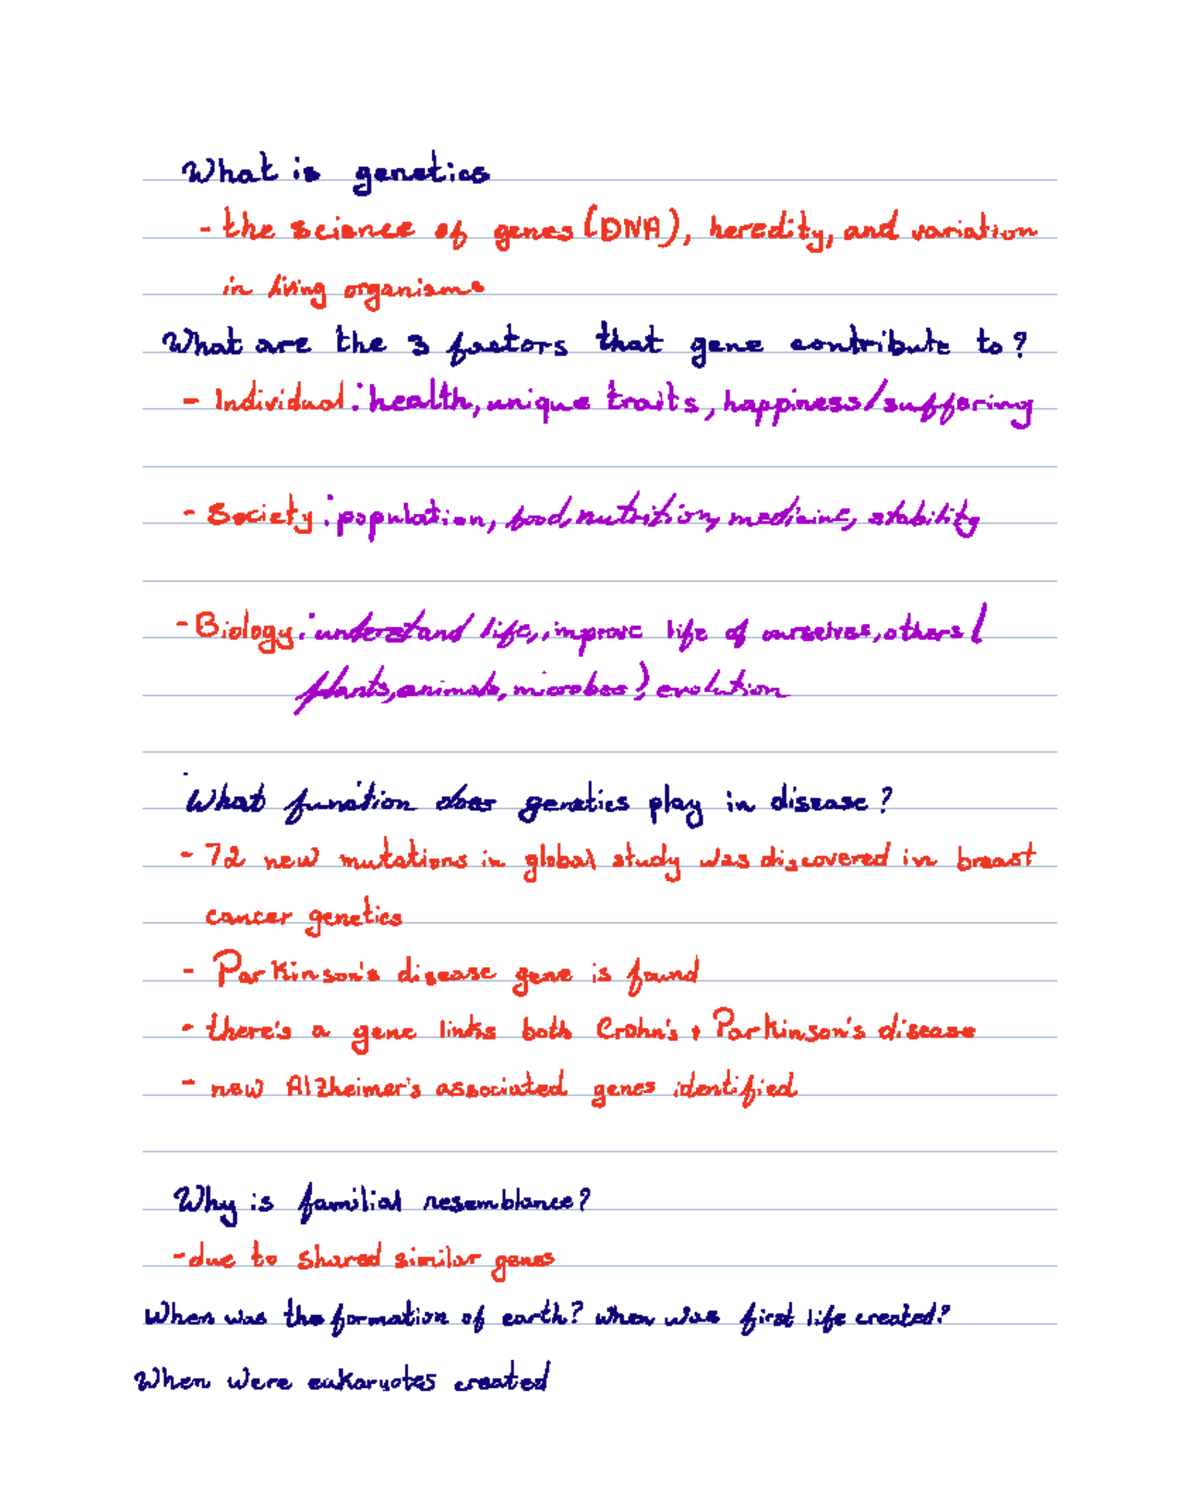 What is genetics
- the science of genes (DNA), heredity, and variation
in living organisms
What are the 3 factors that gene contribute to?
- Individual: health, unique traits, happiness/suffering
- Society: population, food, nutrition, medicine, stability
- Biology: understand life,, improve life of ourselves, others (
plants, animals, microbes), evolution
What function does genetics play in disease?
- 72 new mutations in global study was discovered in breast
cancer genetics
- Parkinson's disease gene is found
- there's a gene links both Crohn's + Parkinson's disease
- new Alzheimer's associated genes identified
Why is familial resemblance?
- due to shared similar genes
When was the formation of earth? when was first life created?
When were eukaryotes created